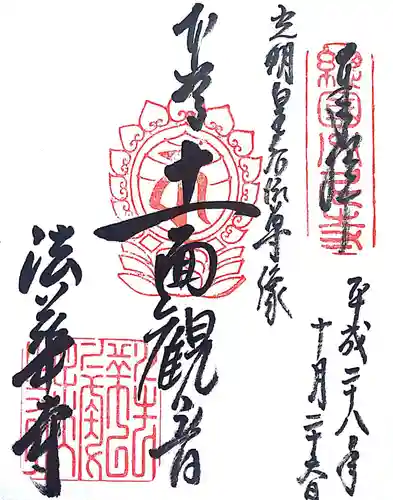 奉拝
平成二八年
十月二十六日
光明皇后御尊像
本尊
十一面觀音
法華寺